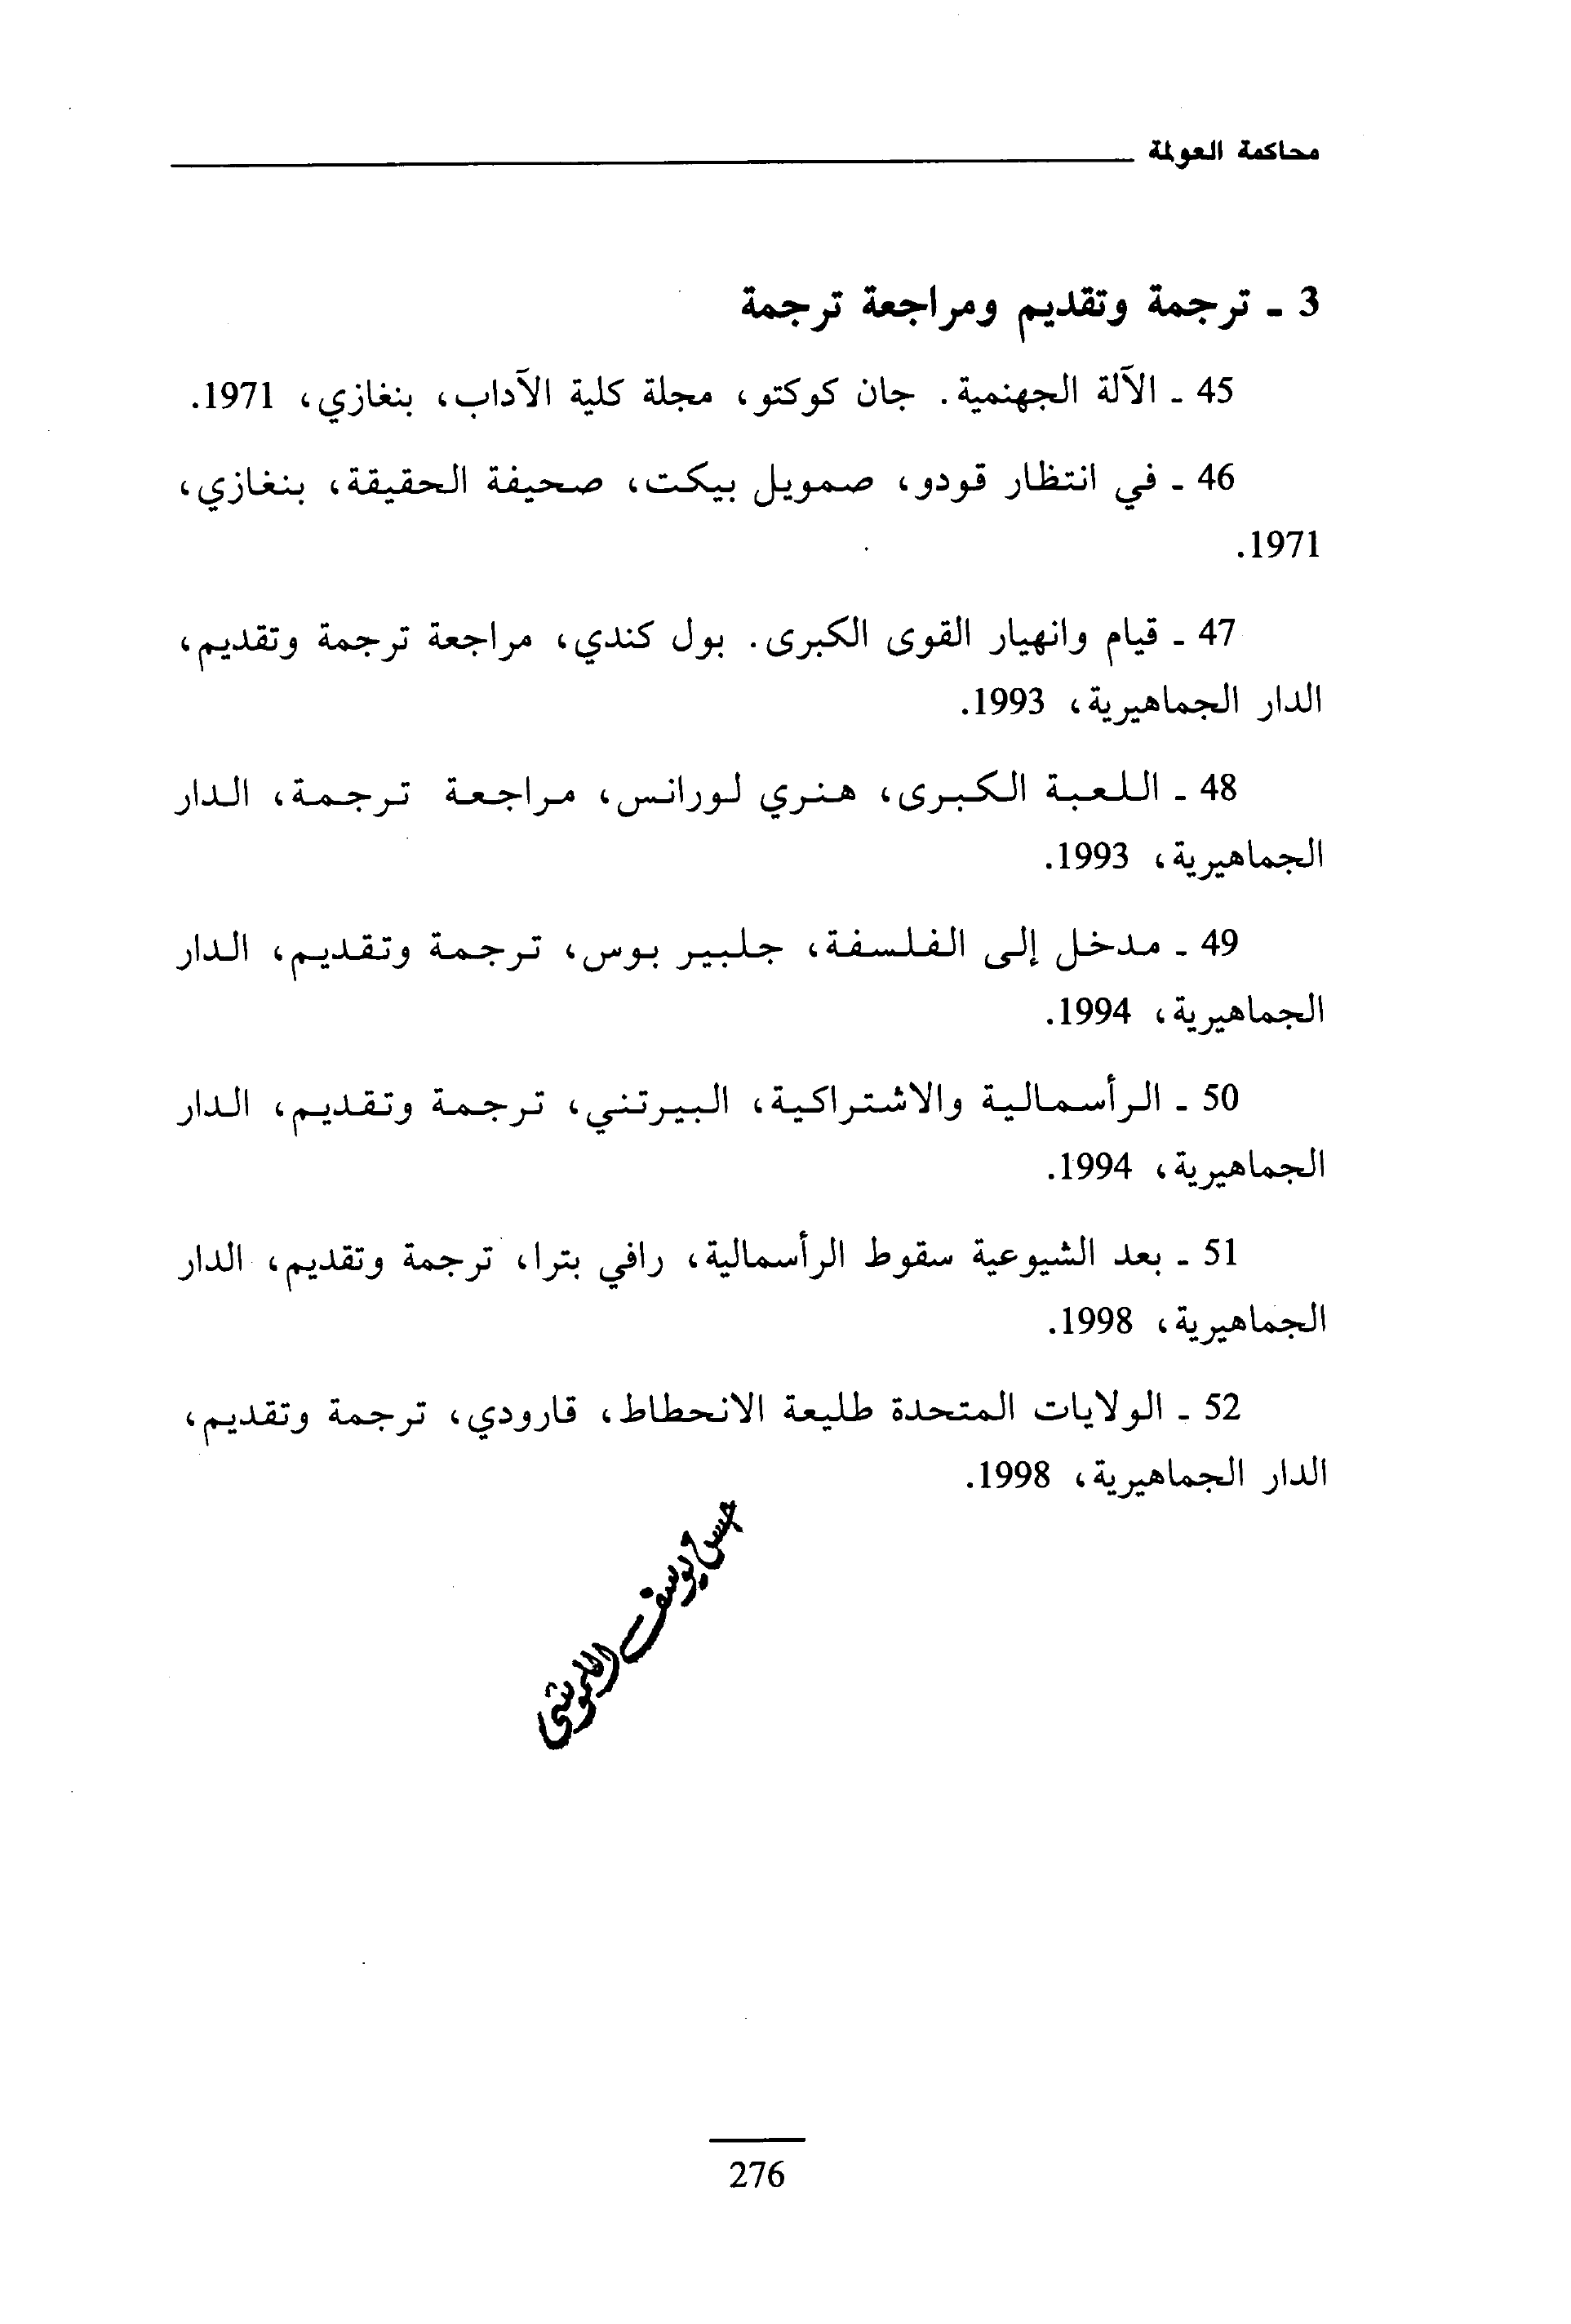 محاكمة العولمة
3 ـ ترجمة وتقديم ومراجعة ترجمة
45 ـ الآلة الجهنمية. جان كوكتو، مجلة كلية الآداب، بنغازي، 1971.
46 ـ في انتظار قودو، صمويل بيكت، صحيفة الحقيقة، بنغازي،
1971.
47 ـ قيام وانهيار القوى الكبرى. بول كندي، مراجعة ترجمة وتقديم،
الدار الجماهيرية، 1993.
48 ـ اللعبة الكبرى، هنري لورانس، مراجعة ترجمة، الدار
الجماهيرية، 1993.
49 ـ مدخل إلى الفلسفة، جلبير بوس، ترجمة وتقديم، الدار
الجماهيرية، 1994.
50 ـ الرأسمالية والاشتراكية، البيرتني، ترجمة وتقديم، الدار
الجماهيرية، 1994.
51 ـ بعد الشيوعية سقوط الرأسمالية، رافي بترا، ترجمة وتقديم، الدار
الجماهيرية، 1998.
52 ـ الولايات المتحدة طليعة الانحطاط، قارودي، ترجمة وتقديم،
الدار الجماهيرية، 1998.
يوسف
276